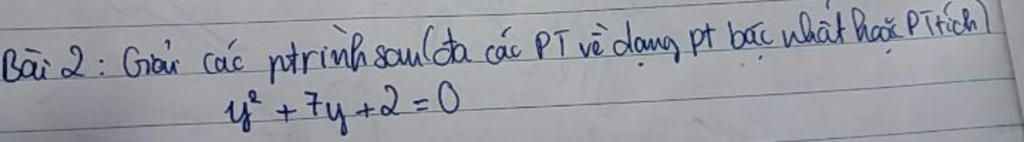 Bài 2: Giải các ptrình sau (đa các PT về dạng pt bậc nhất hoặc PT tích)
y² + 7y + 2 = 0